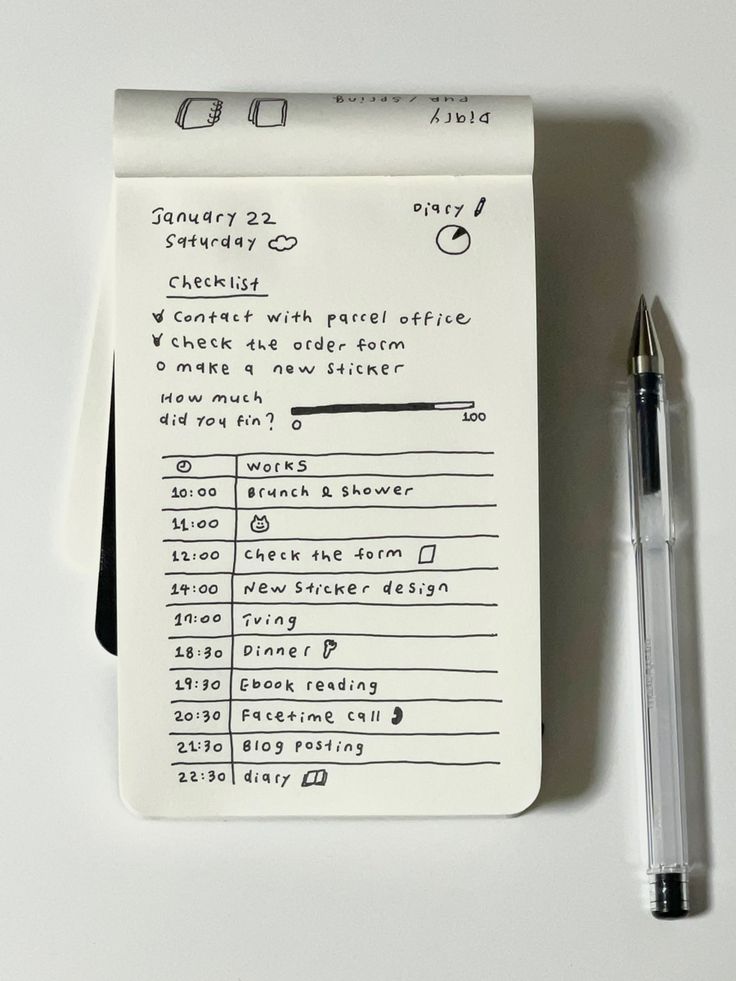 Diary
PHP / Spring
January 22
Diary
Saturday
Checklist
Contact with parcel office
check the order form
make a new sticker
How much
did you fin?
0
100
works
10:00 Brunch & shower
11:00
12:00 check the form
14:00 New sticker design
17:00 Tving
18:30 Dinner
19:30 Ebook reading
20:30 Facetime call
21:30 Blog posting
22:30 diary